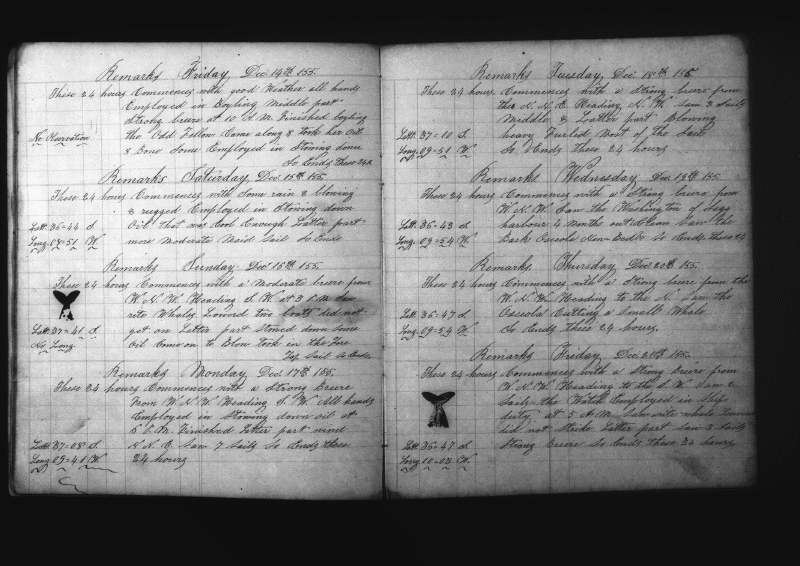 Remarks Friday Dec 14th 155.
These 24 hours Commences with good Weather all hands
Employed in Boyling Middle part
Strong breire at 10 A.M. Finished boyling
No Observation
the Odd Fellow Came along & took her Oil
& Bone Some Employed in Stowing down
So Ends these 24
Remarks Saturday, Dec 15th 155.
These 24 hours Commences with Some rain & blowing
& rugged Employed in Stowing down
Latt 36-44 S
Oil that was Cool Enough Latter part
Long 09-51 W
more Moderate Maid Sail So Ends
Remarks Sunday Dec 16th 155.
These 24 hours Commences with a Moderate breire from
W.N.W. Heading S.W. at 3 P.M. Saw
rite Whales Lowerd two boats did not
Latt 37-41 S
got on Latter part Stowed down Some
No Long
Oil Come on to Blow Took in the Fore
Top Sail So Ends
Remarks Monday Dec 17th 155.
These 24 hours Commences with a Strong Breire
From W.N.W. Heading S.W. All hands
Employed in Stowing down oil at
6 P.M. Finished Latter part wind
Latt 37-08 S
N.N.E. Saw 7 Sails So Ends these
Long 09-41 W
24 hours
Remarks Tuesday, Dec. 18th 155
These 24 hours Commences with a Strong breire from
the N.N.E. Heading N.W. Saw 3 Sails
Middle & Latter part blowing
Latt 37-10 S
heavy Furled Most of the Sail
Long 09-51 W
So Ends these 24 hours
Remarks Wednesday, Dec 19th 155.
These 24 hours Commences with a Strong breire from
W.N.W. Saw the Washington of Sagg
Latt 36-43 S
harbour 4 Months out Clean Saw the
Long 09-54 W
Bark Osceola New Bedd So Ends these 24
Remarks Thursday, Dec 20th 155.
These 24 hours Commences with a Strong breire from the
W.N.W. Heading to the N. Saw the
Latt 36-47 S
Osceola Cutting a Small Whale
Long 09-54 W
So Ends these 24 hours,
Remarks Friday, Dec 21st 155.
These 24 hours Commences with a Strong breire from
W.N.W. Heading to the S.W. Saw 2
Sails the Watch Employed in Ships
duty at 5 A.M. Saw rite whale Lowered
did not Strike Latter part Saw 3 Sails
Latt 36-47 S
Strong Breire So Ends these 24 hours
Long 10-03 W